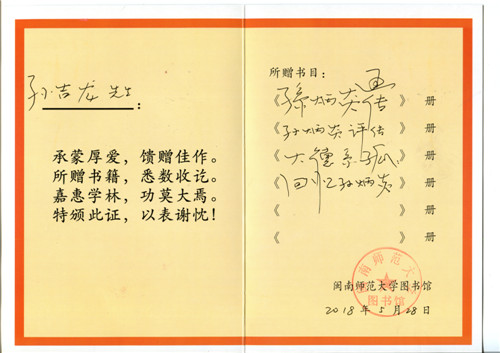 孙吉龙 先生:
承蒙厚爱,馈赠佳作。
所赠书籍,悉数收讫。
嘉惠学林,功莫大焉。
特颁此证,以表谢忱!
所赠书目:
《孫炳炎画传》册
《孙炳炎评传》册
《大德系孤》册
《回忆孙炳炎》册
《 》册
《 》册
闽南师范大学图书馆
闽南师范大学
图书馆
2018年5月28日